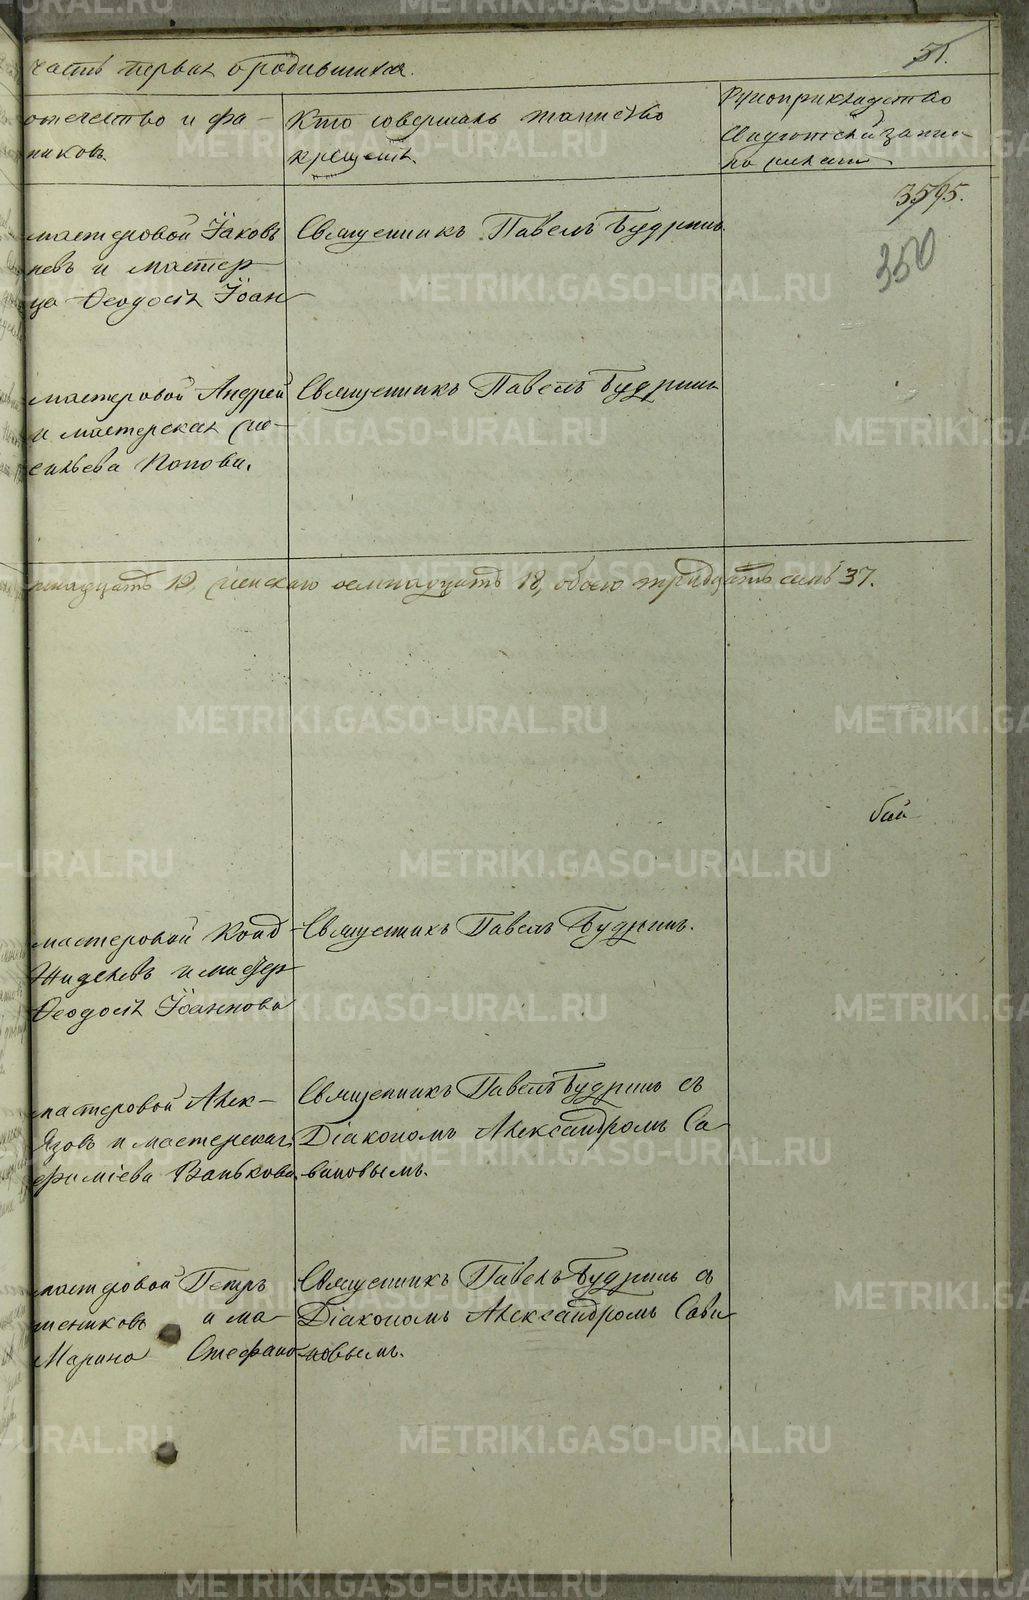 часть первая о родившихся.
51.
отечество и фа-
миков.
Кто совершалъ таинство
крещенія.
Рукоприкладство
свидѣтелей записи
по желанію
3595.
350
мастеровой Іаковъ
невъ и мастер
ца Ѳеодосія Іоан
Священникъ Павелъ Будринъ
мастеровой Андрей
и мастерская
сильева Попова.
Священникъ Павелъ Будринъ
надцать 19, женскаго осмнадцать 18, обоего тридцать семь 37.
бай
мастеровой Конд
Жиделевъ и мастер
Ѳеодосія Іоаннова
Священникъ Павелъ Будринъ.
мастеровой Алек-
Язовъ и мастерская
фиміева Ванькова
Священникъ Павелъ Будринъ съ
Діакономъ Александромъ Са
виновымъ.
мастеровой Петръ
шениковъ и ма-
Марина Стефано
Священникъ Павелъ Будринъ съ
Діакономъ Александромъ Сави
новымъ.
METRIKI.GASO-URAL.RU